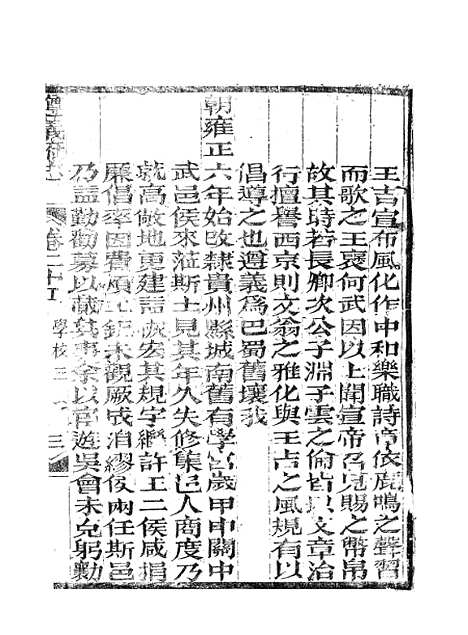 王吉宣布風化作中和樂職詩章依鹿鳴之聲習
而歌之王褒何武因以上聞宣帝召見賜之幣帛
故其時若長卿次公子淵子雲之倫皆以文章治
行擅譽西京則文翁之雅化與王吉之風規有以
倡導之也遵義為巴蜀舊壤我
朝雍正六年始改隸貴州縣城南舊有學宮歲甲申關中
武邑侯來蒞斯土見其年久失修集邑人商度乃
就高敞地更建詰恢宏其規字繼許王二侯咸捐
廉倡率因費煩工鉅未觀厥成洎繆侯兩任斯邑
乃益勤勸募以蕆其事余以宦遊吳會未克躬勷
遵義府志
卷二十五
學校三
三